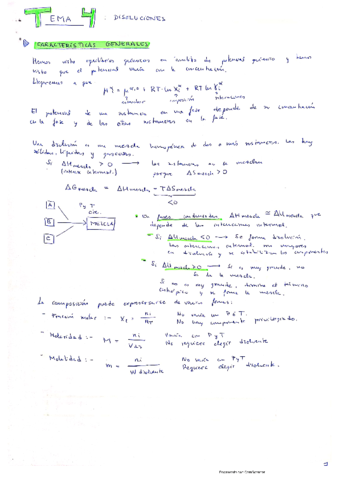 TEMA 4: DISOLUCIONES
CARACTERÍSTICAS GENERALES
Hemos visto equilibrios químicos en función de potencial químico y hemos
visto que el potencial varía con la concentración.
El potencial de una sustancia en una fase depende de su concentración
en la fase y de las otras sustancias en la fase.
Una disolución es una mezcla homogénea de dos o más sustancias. Las hay
sólidas, líquidas y gaseosas.
Si ΔH mezcla > 0 → las sustancias se mezclan
porque ΔS mezcla > 0
ΔG mezcla = ΔH mezcla − TΔS mezcla
<0
A
P y T
cte.
B
MEZCLA
C
En fases condensadas, ΔH mezcla ≅ ΔU mezcla que
depende de las interacciones intermol.
Si ΔH mezcla < 0 → Se forma disolución,
las interacc. intermol. son mayores
en disolución y se estabilizan los componentes
Si ΔH mezcla > 0 → Si es muy grande, no
se da la mezcla.
Si no es muy grande, domina el término
entrópico y se forma la mezcla.
La composición puede expresarse de varias formas:
- Fracción molar :- Xi = ni / nT No varía con P o T.
No hay componente privilegiado.
- Molaridad :- M = ni / V dis Varía con P y T
No requiere elegir disolvente
- Molalidad :- m = ni / W disolvente No varía con P y T
Requiere elegir disolvente.